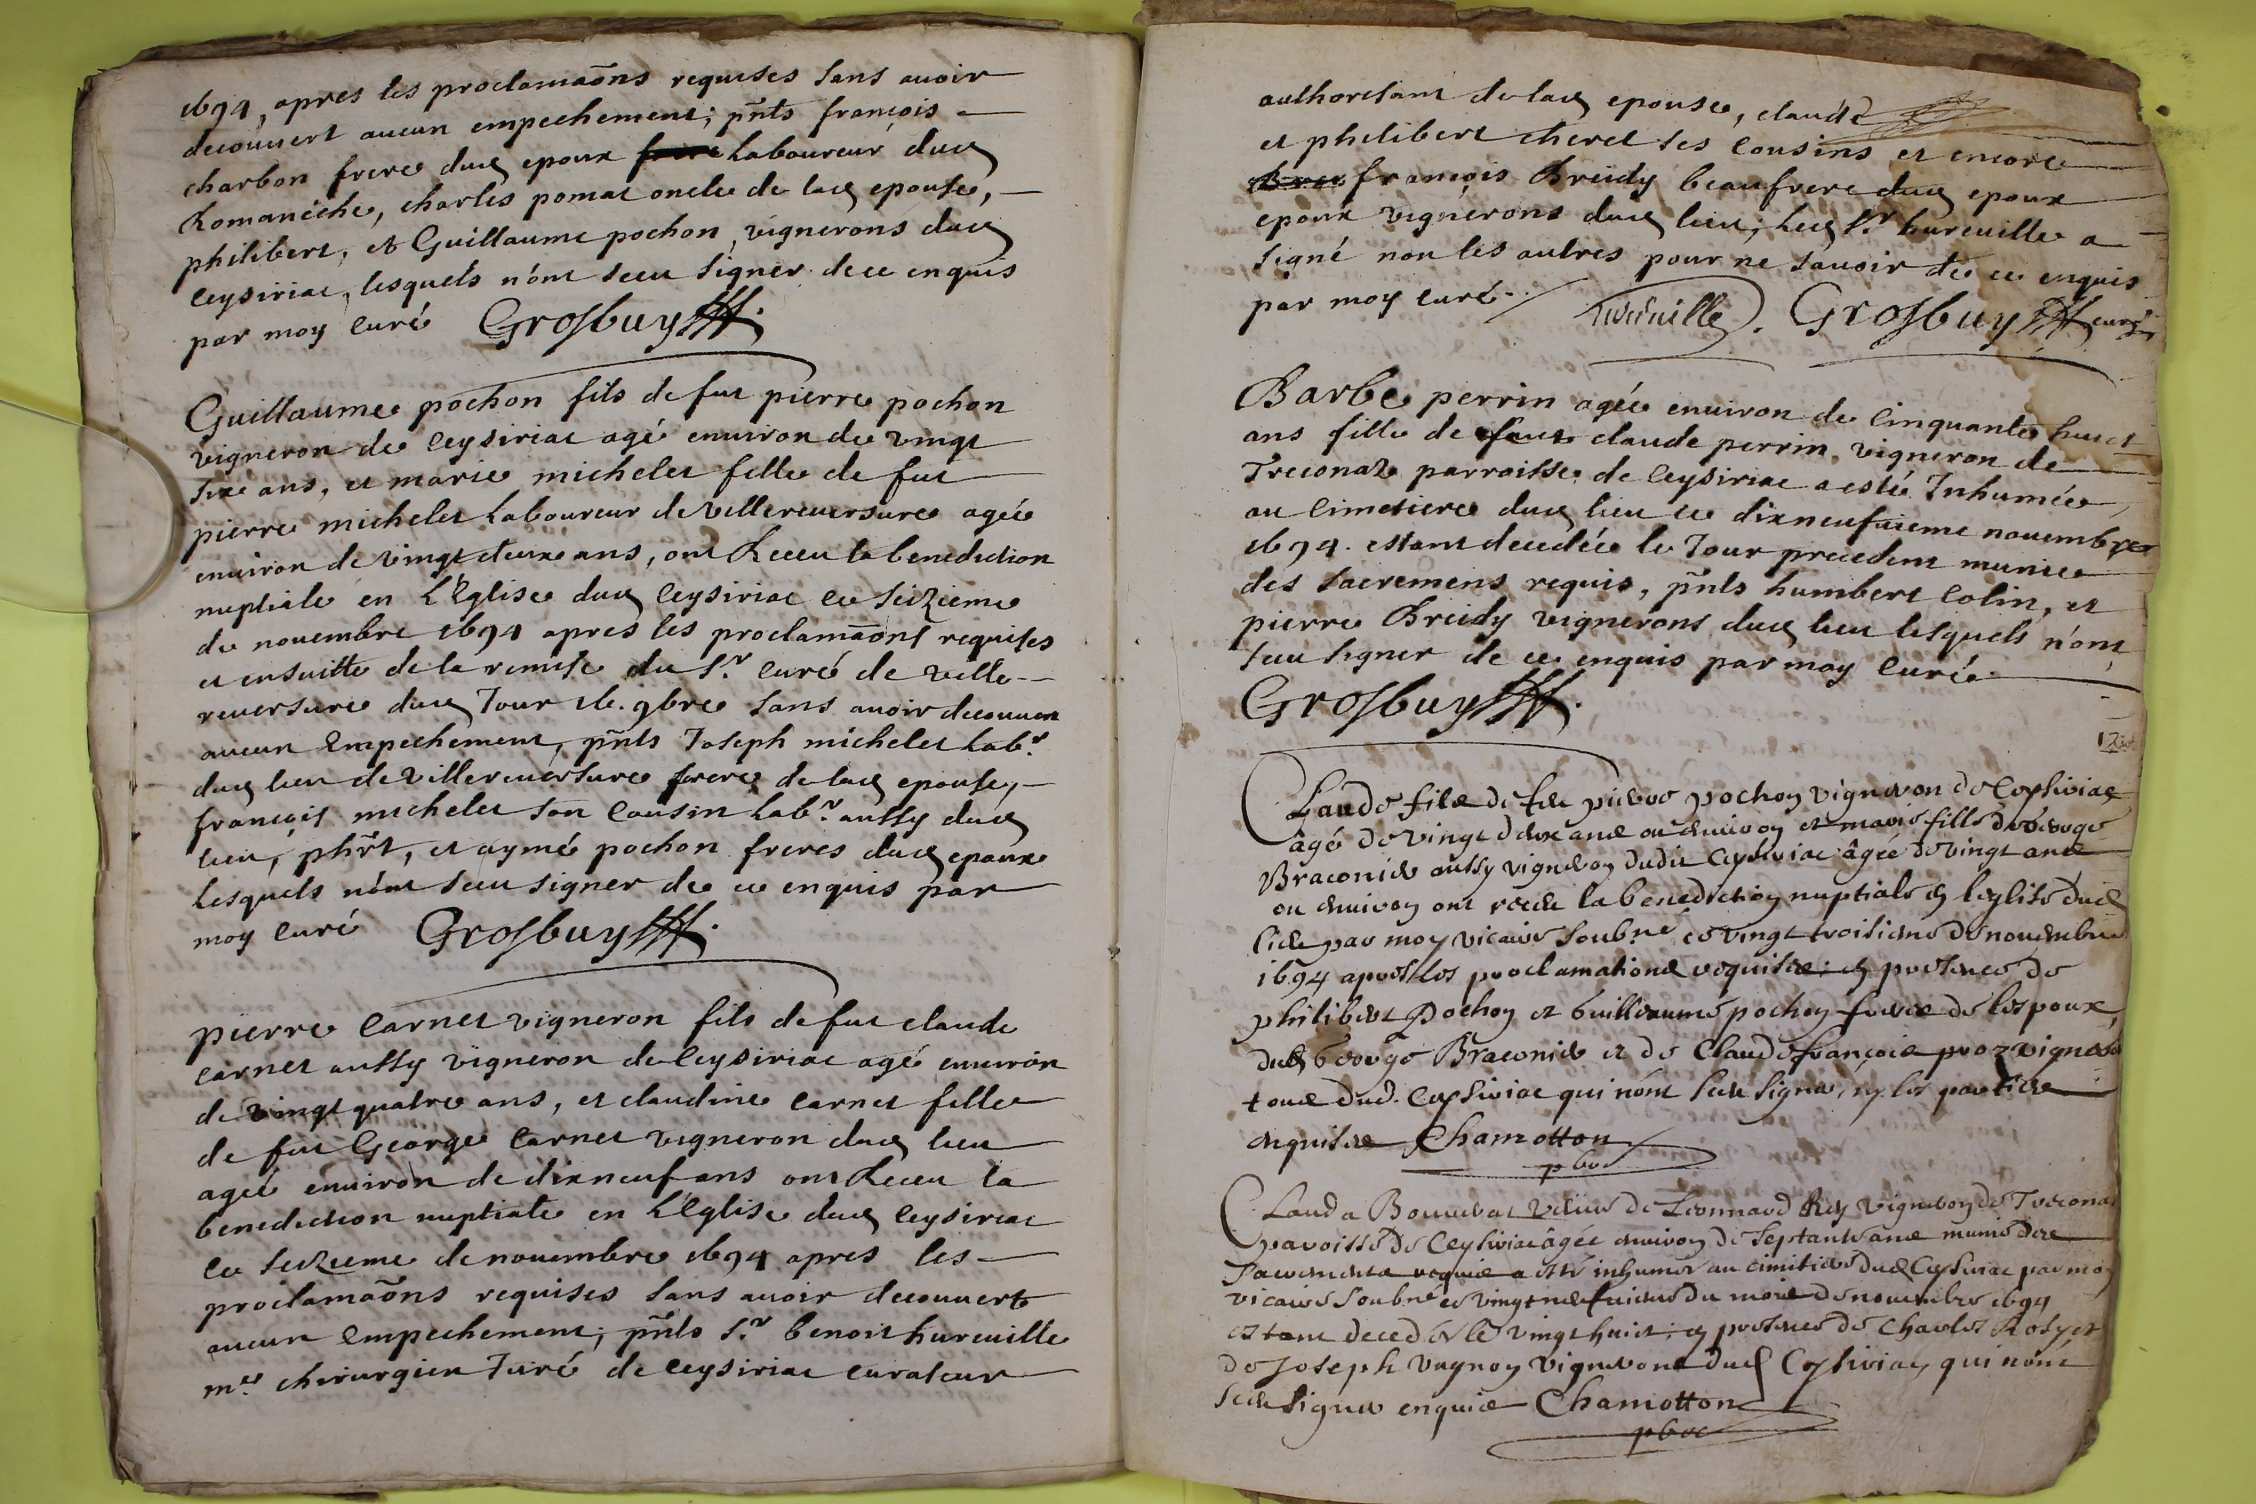 1694, apres les proclamaõns requises sans auoir
decouuert aucun empechement; pñts françois
charbon frere dud epoux laboureur dud
Romanêche, charles pomat oncle de lad epouse,
philibert, et Guillaume pochon, vignerons dud
ceysiriat, lesquels n'ont sceu signer de ce enquis
par moy curé Grosbuy
Guillaume pochon fils de fut pierre pochon
vigneron de ceysiriat agé enuiron de vingt
six ans, et marie michelet fille de fut
pierre michelet Laboureur de villereuersure agée
enuiron de vingt deux ans, ont Receu la benediction
nuptiale en L'Eglise dud ceysiriat ce seizieme
de nouembre 1694 apres les proclamaõns requises
et ensuitte de la remise du Sr. curé de ville-
reuersure dud Jour 16. 9bre sans auoir decouuert
aucun Empechement, pñts Joseph michelet Labr.
dud lieu de villereuersure frere de lad epouse,
françois michelet son cousin Labr. aussy dud
lieu, phrt, et aymé pochon freres dud epoux
Lesquels n'ont sceu signer de ce enquis par
moy curé Grosbuy
pierre carnet vigneron fils de fut claude
carnet aussy vigneron de ceysiriat agé enuiron
de vingt quatre ans, et claudine carnet fille
de fut George carnet vigneron dud lieu
agée enuiron de dixneuf ans ont Receu la
benediction nuptiale en L'Eglise dud ceysiriat
ce seizieme de nouembre 1694 apres les
proclamaõns requises sans auoir decouuert
aucun Empechement; pñts Sr. benoit hureuille
me. chirurgien Juré de ceysiriat curateur
authorisant de lad epouse, claude
et philibert cheret ses cousins et encore
françois Breidy beaufrere dud epoux
epoux vignerons dud lieu; Led Sr. hureuille a
signé non les autres pour ne sauoir de ce enquis
par moy curé. hureuille. Grosbuy curé
Barbe perrin agée enuiron de cinquante huict
ans fille de claude perrin vigneron de
Treconaz parroisse de ceysiriat a esté Inhumée
au cimetiere dud lieu ce dixneufuieme nouembre
1694. estant decedée le Jour precedent munie
des sacremens requis, pñts humbert colin, et
pierre Breidy vignerons dud lieu lesquels n'ont
sceu signer de ce enquis par moy curé
Grosbuy
Claude fils de feu pierre pochon vigneron de Ceysiriat
âgé de vingt deux ans ou enuiron et marie fille de George
Braconier aussy vigneron dudit Ceysiriat âgée de vingt ans
ou enuiron ont receu la benediction nuptiale en leglise dud
lieu par moy vicaire soubné ce vingt troisieme de nouembre
1694 apres les proclamations requises; en presence de
philibert Pochon et Guilleaume pochon freres de lespoux,
dud George Braconier et de Claude françois proz vignerons
tous dud. Ceysiriat qui n'ont sceu signer, les parties
enquises Chamotton
pbre
Clauda veuue de Leonnard Rey vigneron de Treconas
paroisse de Ceysiriat âgée enuiron de septante ans munie des
sacrements requis a esté inhumée au cimitiere dud Ceysiriat par moy
vicaire soubné ce vingt neufuieme du mois de nouembre 1694
estant decedée le vingt huict; en presence de Charles Rosy et
de Joseph vugnon vignerons dud Ceysiriat, qui n'ont
sceu signer enquis Chamotton
pbre